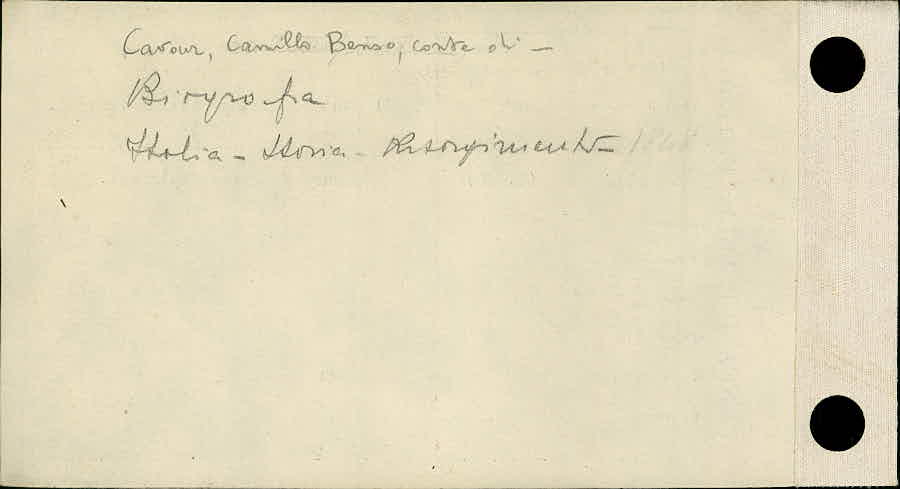 Cavour, Camillo Benso, conte di –
Biografia
Italia – Storia – Risorgimento –